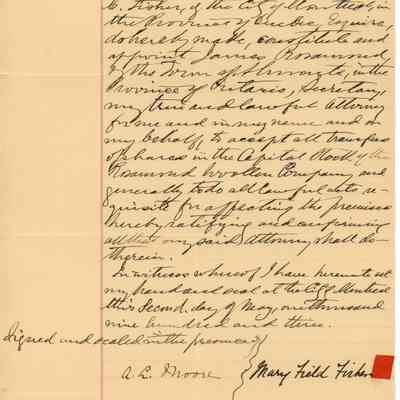 C. Fisher, of the City of Montreal, in
the Province of Quebec, Esquire,
do hereby make, constitute and
appoint James Rosamond
of the Town of Almonte, in the
Province of Ontario, Secretary,
my true and lawful Attorney
for me and in my name and on
my behalf, to accept all transfers
of shares in the Capital Stock of the
Rosamond Woollen Company and
generally to do all lawful acts, re-
quisite for effecting the premises
hereby ratifying and confirming
all that my said Attorney shall do
therein.
In witness whereof I have hereunto set
my hand and seal at the City of Montreal
this Second day of May, one thousand
nine hundred and three.
Signed and sealed in the presence of
A. L. Moore
Mary Field Fisher